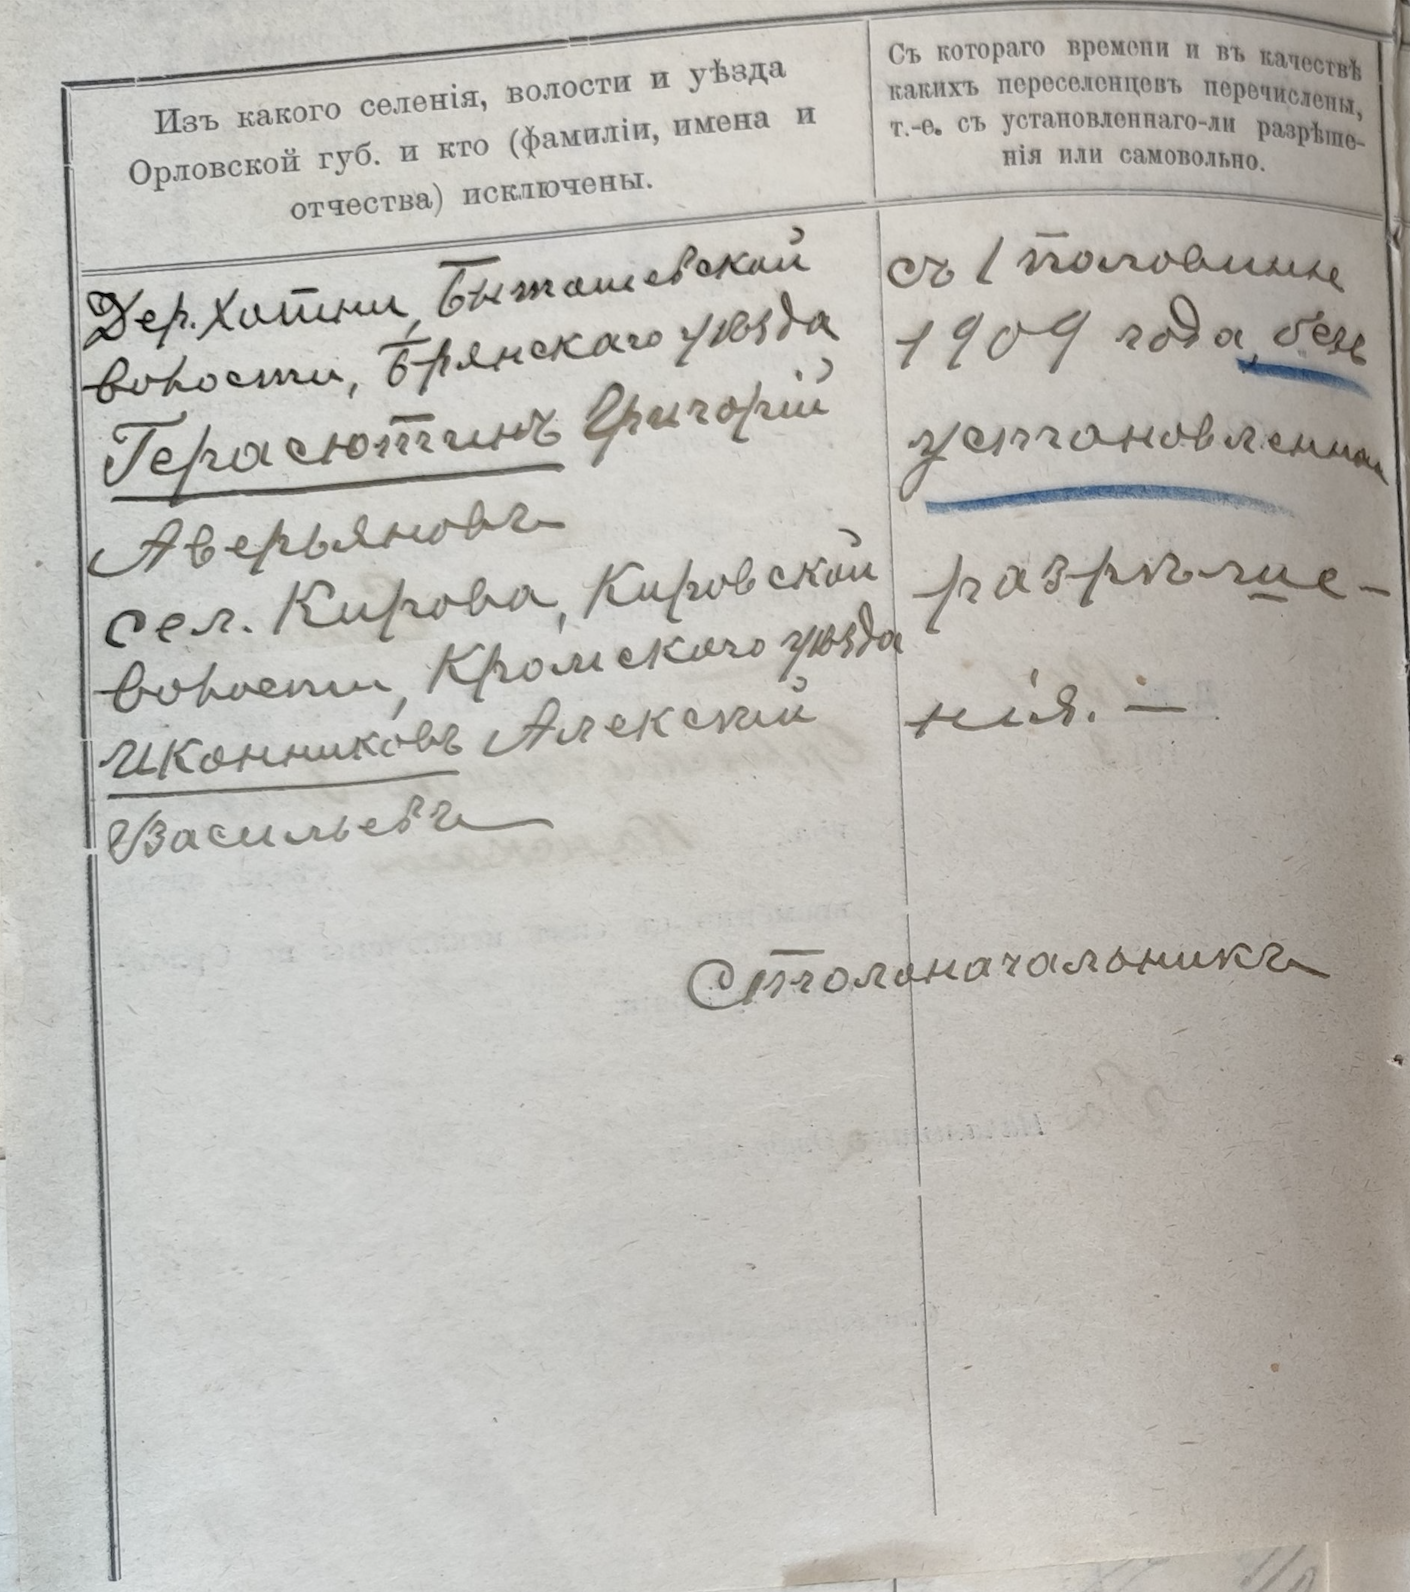 Изъ какого селенія, волости и уѣзда
Орловской губ. и кто (фамиліи, имена и
отчества) исключены.
Съ котораго времени и въ качествѣ
какихъ переселенцевъ перечислены,
т.-е. съ установленнаго-ли разрѣше-
нія или самовольно.
Дер. Хотни, Бытошевской
волости, Брянскаго уѣзда
Герасютинъ Григорій
Аверьяновъ
сел. Кирова, Кировской
волости, Кромскаго уѣзда
Иконниковъ Алексѣй
Васильевъ
съ 1 половины
1909 года, безъ
установленнаго
разрѣше-
нія. —
Столоначальникъ